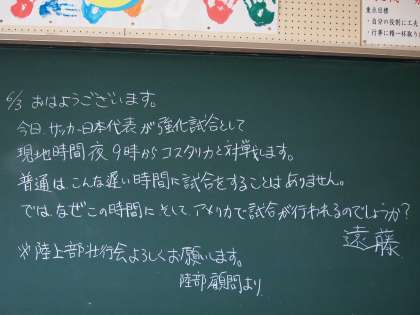 重点目標
・自分の役割に工夫
・行事に精一杯取り
6/3 おはようございます。
今日、サッカー日本代表が強化試合として
現地時間夜9時からコスタリカと対戦します。
普通は、こんな遅い時間に試合をすることはありません。
では、なぜこの時間に、そして、アメリカで試合が行われるのでしょうか?
遠藤
※陸上部壮行会よろしくお願います。
陸部顧問より